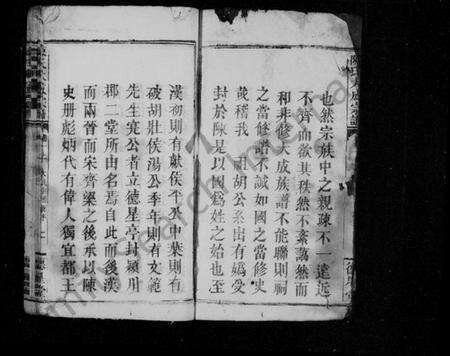 也然宗族中之親疎不一遠近
不齊而欲其秩然不紊藹然而
和非修大成族譜不能聯則祠
之當修譜不誠如國之當修史
哉稽我 胡公系出有媯受
封於陳是以國爲姓之始也至
漢初則有獻侯平丞中葉則有
破胡壯侯湯公季年則有文範
先生寔公者立德星亭封潁川
郡二堂所由名焉自此而後漢
而兩晉而宋齊梁之後承以陳
史册彪炳代有偉人獨宜都王